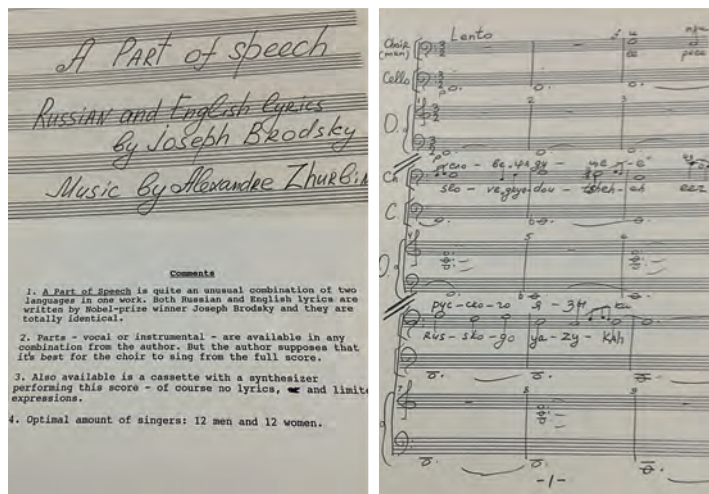 A Part of speech
Russian and English lyrics
by Joseph Brodsky
Music by Alexandre Zhurbin
Comments
1. A Part of Speech is quite an unusual combination of two
languages in one work. Both Russian and English lyrics are
written by Nobel-prize winner Joseph Brodsky and they are
totally identical.
2. Parts - vocal or instrumental - are available in any
combination from the author. But the author supposes that
it's best for the choir to sing from the full score.
3. Also available is a cassette with a synthesizer
performing this score - of course no lyrics, and limite
expressions.
4. Optimal amount of singers: 12 men and 12 women.
Lento
Choir
(men)
Cello
O.
1 2 3
Ch
C
O.
4 5 6
рус-ско-го я-зы-ка
Rus-sko-go ya-zy-kah
7 8 9
-1-